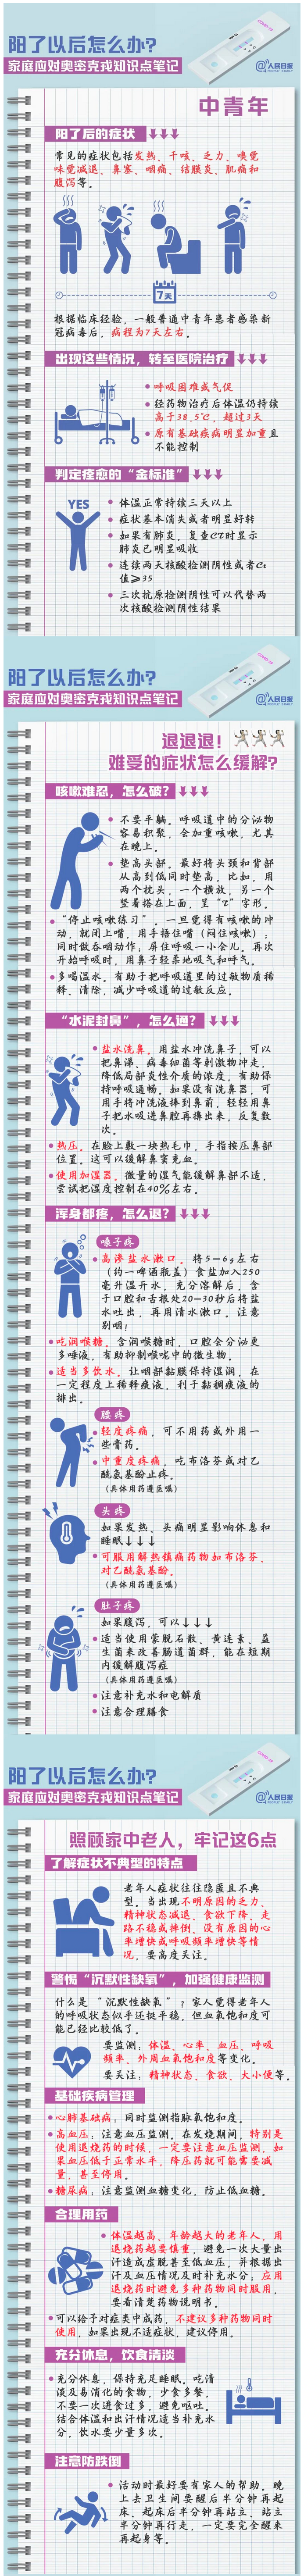 COVID-19
阳了以后怎么办?
家庭应对奥密克戎知识点笔记
@人民日报
PEOPLE'S DAILY
中青年
阳了后的症状
常见的症状包括发热、干咳、乏力、嗅觉
味觉减退、鼻塞、咽痛、结膜炎、肌痛和
腹泻等。
7天
根据临床经验,一般普通中青年患者感染新
冠病毒后,病程为7天左右。
出现这些情况,转至医院治疗
呼吸困难或气促
经药物治疗后体温仍持续
高于38.5℃,超过3天
原有基础疾病明显加重且
不能控制
判定痊愈的“金标准”
YES
体温正常持续三天以上
症状基本消失或者明显好转
如果有肺炎,复查CT时显示
肺炎已明显吸收
连续两天核酸检测阴性或者Ct
值≥35
三次抗原检测阴性可以代替两
次核酸检测阴性结果
COVID-19
阳了以后怎么办?
家庭应对奥密克戎知识点笔记
@人民日报
PEOPLE'S DAILY
退退退!
难受的症状怎么缓解?
咳嗽难忍,怎么破?
不要平躺。呼吸道中的分泌物
容易积聚,会加重咳嗽,尤其
在晚上。
垫高头部。最好将头颈和背部
从高到低同时垫高,比如,用
两个枕头,一个横放,另一个
竖着搭在上面,呈“T”字形。
“停止咳嗽练习”。一旦觉得有咳嗽的冲
动,就闭上嘴,用手捂住嘴(闷住咳嗽);
同时做吞咽动作,屏住呼吸一小会儿。再次
开始呼吸时,用鼻子轻柔地吸气和呼气。
多喝温水。有助于把呼吸道里的过敏物质稀
释、清除,减少呼吸道的过敏反应。
“水泥封鼻”,怎么通?
盐水洗鼻。用盐水冲洗鼻子,可以
把鼻涕、病毒细菌等刺激物冲走,
降低局部炎性介质的浓度,有助保
持呼吸通畅。如果没有洗鼻器,可
用手将冲洗液捧到鼻前,轻轻用鼻
子把水吸进鼻腔再擤出来,反复数
次。
热压。在脸上敷一块热毛巾,手指按压鼻部
位置。这可以缓解鼻窦充血。
使用加湿器。微量的湿气能缓解鼻部不适,
尝试把湿度控制在40%左右。
浑身都疼,怎么退?
嗓子疼
高渗盐水漱口。将5—6g左右
(约一啤酒瓶盖)食盐加入250
毫升温开水,充分溶解后,含
于口腔和舌根处20—30秒后将盐
水吐出,再用清水漱口。注意
别咽!
吃润喉糖。含润喉糖时,口腔会分泌更
多唾液,有助抑制喉咙中的微生物。
适当多饮水。让咽部黏膜保持湿润,在
一定程度上稀释痰液,利于黏稠痰液的
排出。
腰疼
轻度疼痛,可不用药或外用一
些膏药。
中重度疼痛,吃布洛芬或对乙
酰氨基酚止疼。
(具体用药遵医嘱)
头疼
如果发热、头痛明显影响休息和
睡眠↓↓↓
可服用解热镇痛药物如布洛芬、
对乙酰氨基酚。
(具体用药遵医嘱)
肚子疼
如果腹泻,可以↓↓↓
适当使用蒙脱石散、黄连素、益
生菌来改善肠道菌群,能在短期
内缓解腹泻症
(具体用药遵医嘱)
注意补充水和电解质
注意合理膳食
COVID-19
阳了以后怎么办?
家庭应对奥密克戎知识点笔记
@人民日报
PEOPLE'S DAILY
照顾家中老人,牢记这6点
了解症状不典型的特点
老年人症状往往隐匿且不典
型。当出现不明原因的乏力、
精神状态减退、食欲下降、走
路不稳或摔倒、没有原因的心
率增快或呼吸频率增快等情
况,要高度关注。
警惕“沉默性缺氧”,加强健康监测
什么是“沉默性缺氧”?家人觉得老年人
的呼吸状态似乎还挺平稳,但血氧饱和度可
能已经比较低了。
要监测:体温、心率、血压、呼吸
频率、外周血氧饱和度等变化。
要关注:精神状态、食欲、大小便等。
基础疾病管理
心肺基础病:同时监测指脉氧饱和度。
高血压:注意血压监测。在发烧期间,特别是
使用退烧药的时候,一定要注意血压监测,如
果血压低于正常水平,降压药就可能需要减
量,甚至停用。
糖尿病:注意监测血糖变化,防止低血糖。
合理用药
体温越高、年龄越大的老年人,用
退烧药越要慎重,避免一次大量出
汗造成虚脱甚至低血压,并根据出
汗及血压情况及时补充水分;应用
退烧药时避免多种药物同时服用,
要看清楚药物说明书。
可以给予对症类中成药,不建议多种药物同时
使用,如果出现不适症状,建议停用。
充分休息,饮食清淡
充分休息,保持充足睡眠。吃清
淡及易消化的食物,少食多餐,
不要一次进食过多,避免呕吐。
结合体温和出汗情况适当补充水
分,饮水要少量多次。
注意防跌倒
活动时最好要有家人的帮助。晚
上去卫生间要醒后半分钟再起
床、起床后半分钟再站立、站立
半分钟再行走,一定要完全醒来
再起身等。